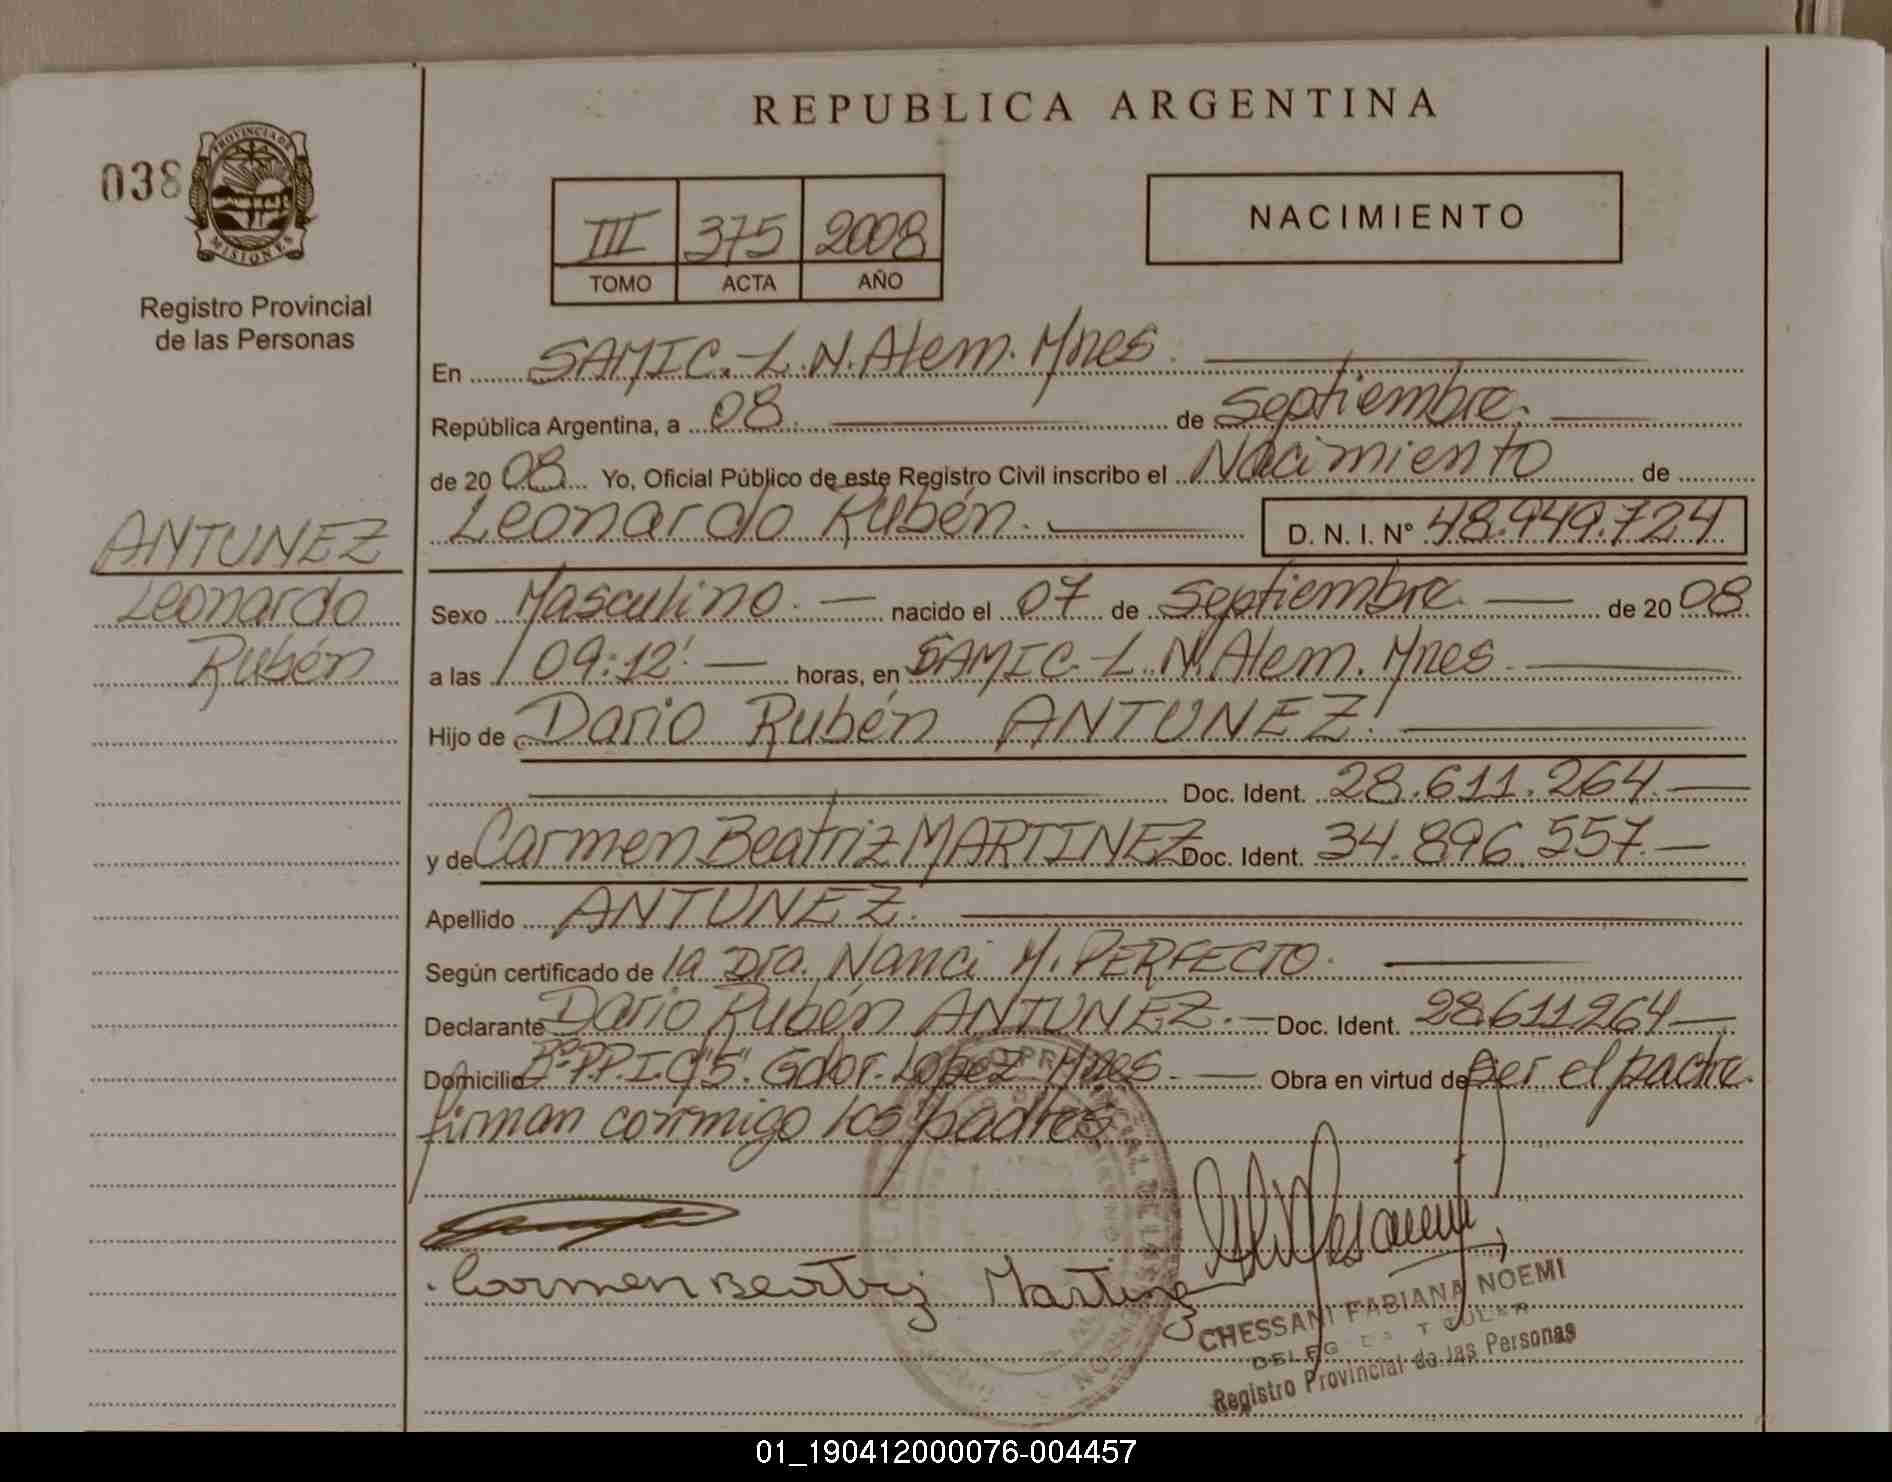 REPUBLICA ARGENTINA
038
PROVINCIA DE
MISIONES
Registro Provincial
de las Personas
III 375 2008
TOMO ACTA AÑO
NACIMIENTO
En SAMIC. L. N. Alem. Mnes.
República Argentina, a 08. de Septiembre.
de 20 08 Yo, Oficial Público de este Registro Civil inscribo el Nacimiento de
Leonardo Rubén. D. N. I. Nº 48.949.724
ANTUNEZ
Leonardo
Rubén
Sexo Masculino. nacido el 07 de Septiembre. de 20 08
a las 09:12' horas, en SAMIC. L. N. Alem. Mnes.
Hijo de Dario Rubén ANTUNEZ.
Doc. Ident. 28.611.264.
y de Carmen Beatriz MARTINEZ Doc. Ident. 34.896.557.
Apellido ANTUNEZ.
Según certificado de la Dra. Nanci M. PERFECTO.
Declarante Dario Rubén ANTUNEZ. Doc. Ident. 28.611.264
Domicilio Gdor. Lopez Mnes. Obra en virtud de ser el padre.
firman conmigo los padres
Carmen Beatriz Martinez
CHESSANI FABIANA NOEMI
Registro Provincial de las Personas
01_190412000076-004457